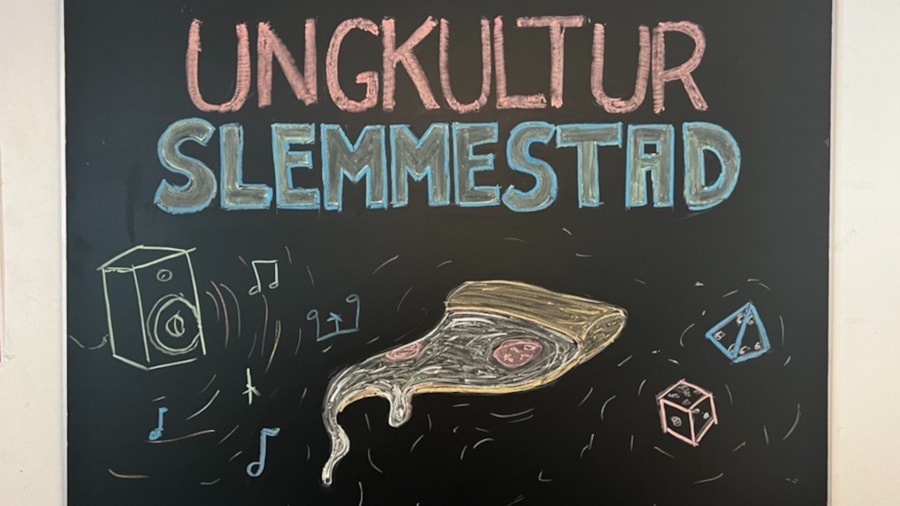 UNGKULTUR
SLEMMESTAD